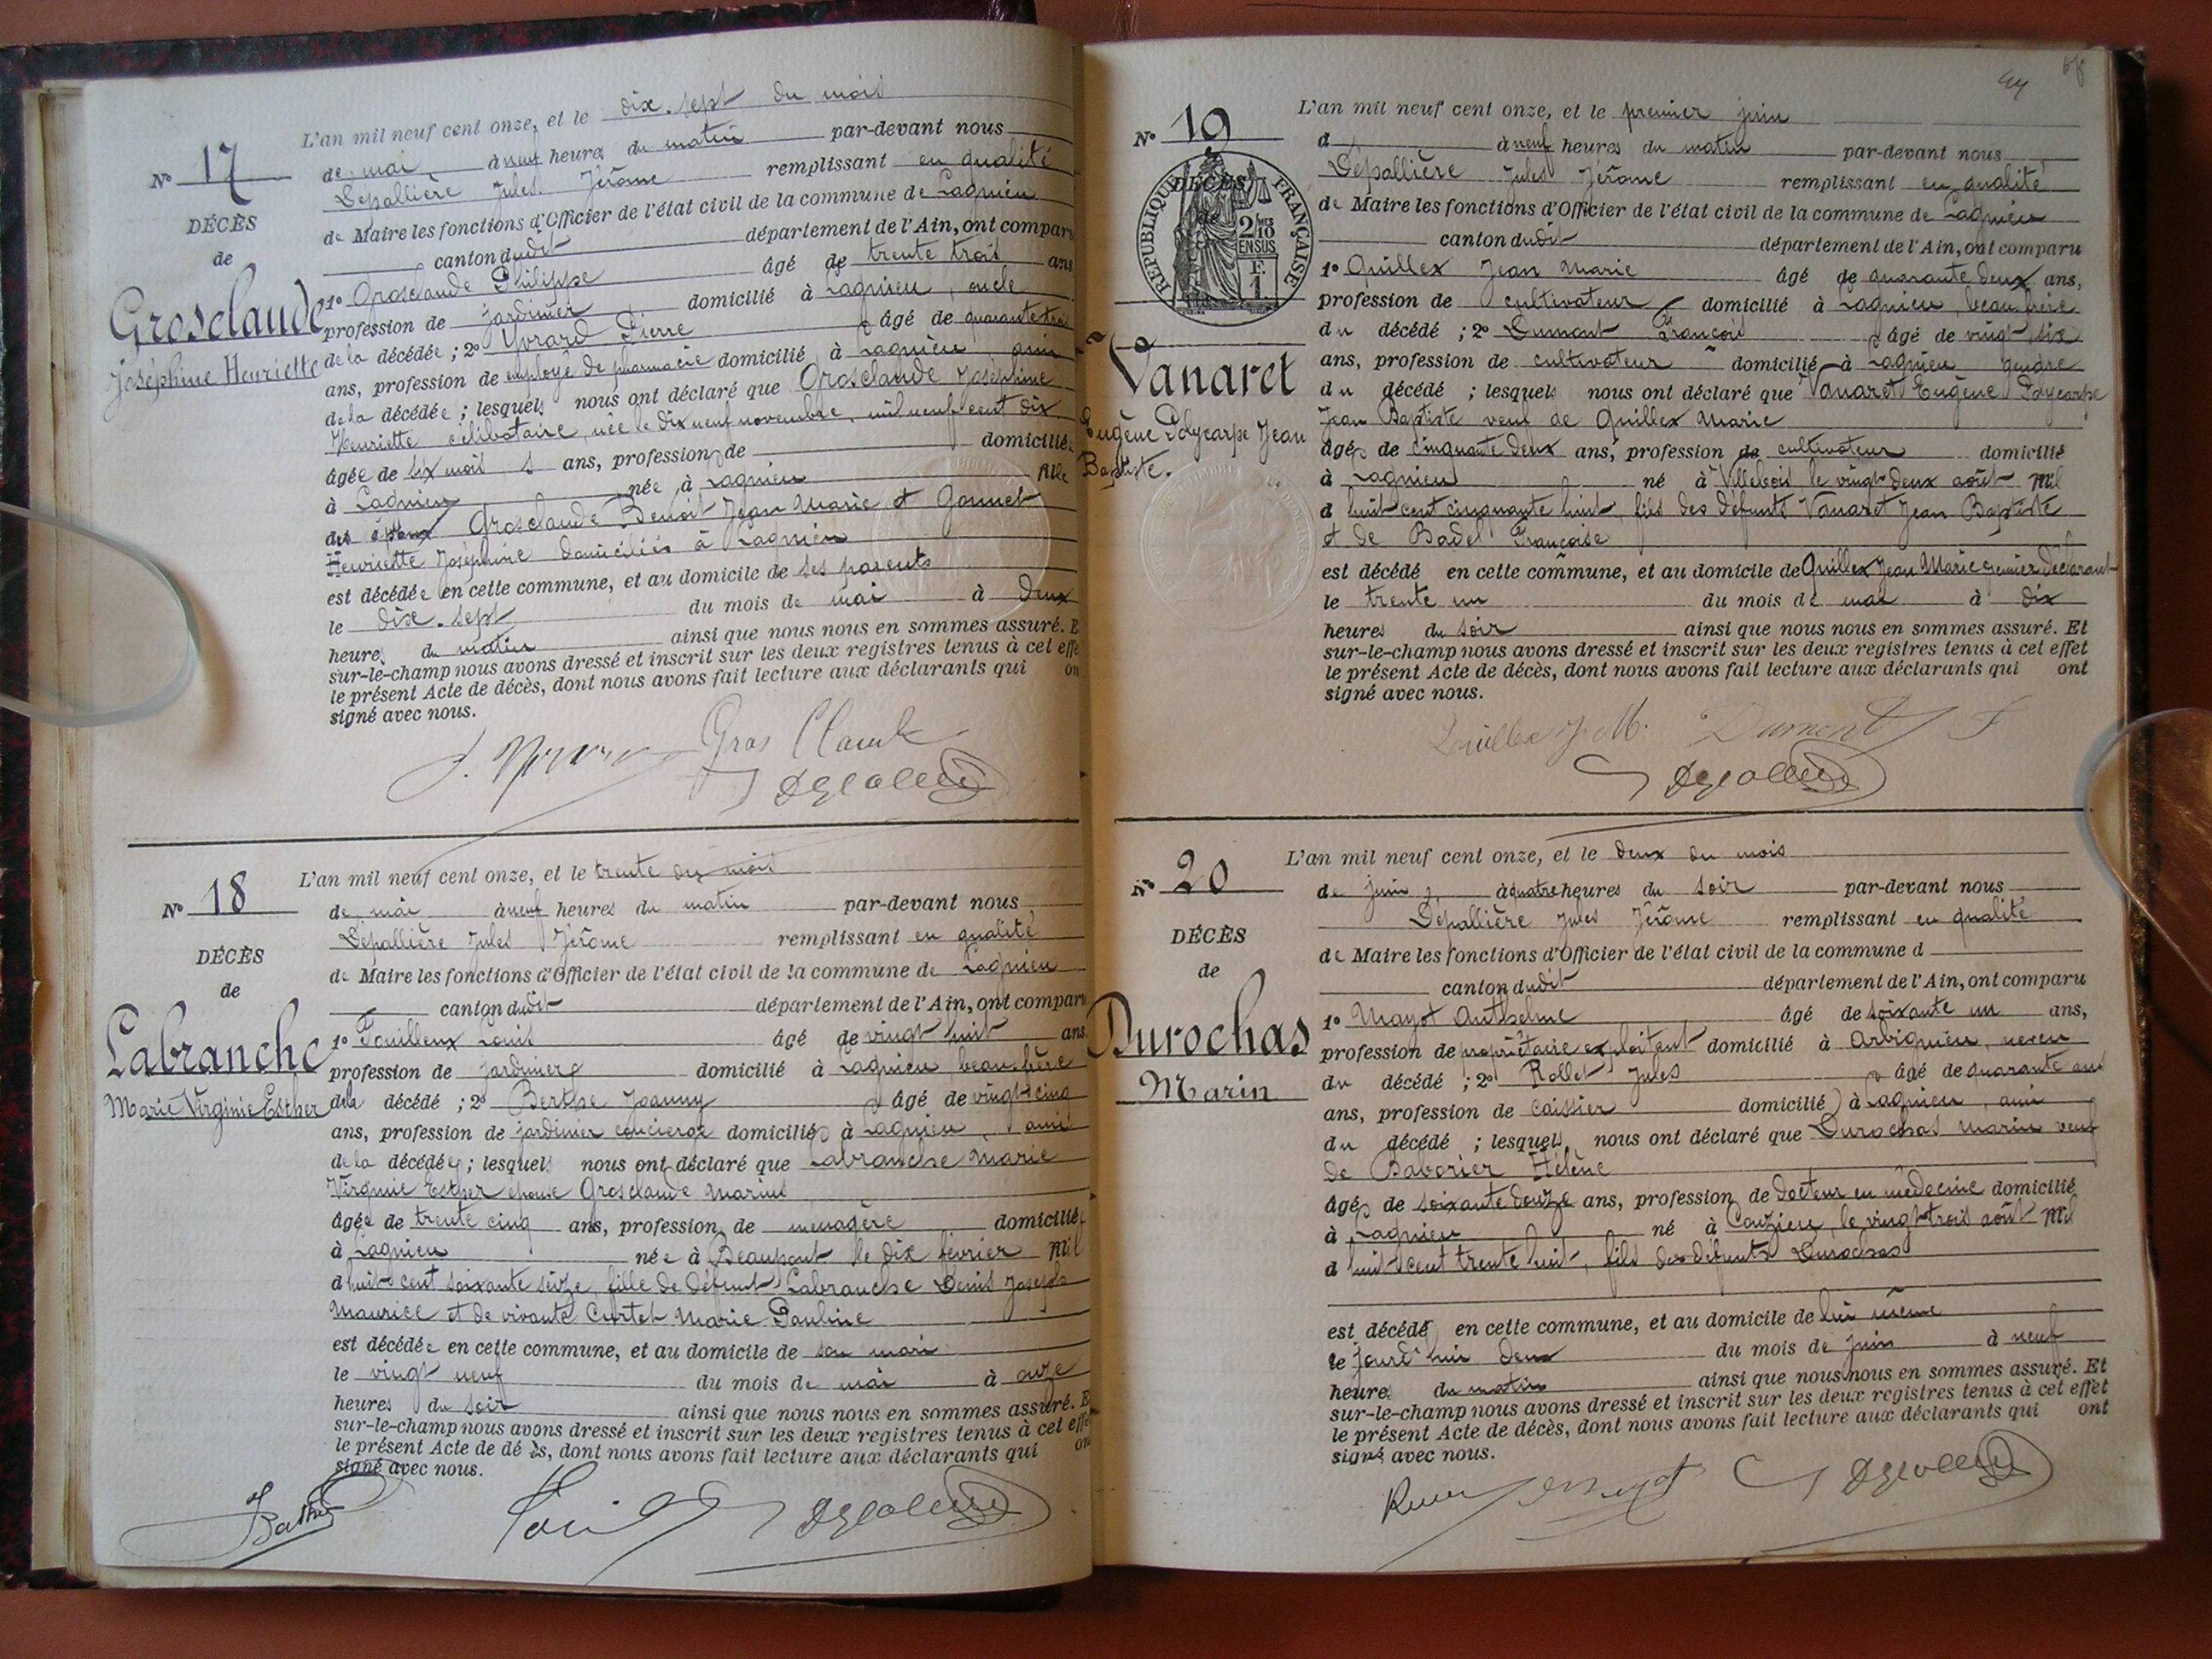 L'an mil neuf cent onze, et le dix-sept du mois
Nº 17
de mai à neuf heures du matin par-devant nous
Dépallière Jules Jérôme remplissant en qualité
de Maire les fonctions d'Officier de l'état civil de la commune de Lagnieu
canton dudit département de l'Ain, ont comparu
DÉCÈS
de
Grosclaude
Joséphine Henriette
1º Grosclaude Philippe âgé de trente trois ans
profession de jardinier domicilié à Lagnieu, oncle
de la décédée ; 2º Yvrard Pierre âgé de quarante trois
ans, profession de employé de pharmacie domicilié à Lagnieu ami
de la décédée ; lesquels nous ont déclaré que Grosclaude Joséphine
Henriette célibataire, née le dix neuf novembre, mil neuf cent dix
âgée de six mois ans, profession de domiciliée
à Lagnieu née à Lagnieu fille
des époux Grosclaude Benoit Jean Marie et Gonnet
Henriette Joséphine domiciliés à Lagnieu
est décédée en cette commune, et au domicile de ses parents
le dix-sept du mois de mai à deux
heures du matin ainsi que nous nous en sommes assuré. E
sur-le-champ nous avons dressé et inscrit sur les deux registres tenus à cet effe
le présent Acte de décès, dont nous avons fait lecture aux déclarants qui on
signé avec nous.
Gros Claude
L'an mil neuf cent onze, et le trente du mois
Nº 18
de mai à neuf heures du matin par-devant nous
Dépallière Jules Jérôme remplissant en qualité
de Maire les fonctions d'Officier de l'état civil de la commune de Lagnieu
canton dudit département de l'Ain, ont comparu
DÉCÈS
de
Labranche
Marie Virginie Esther
1º Fouilleux Louis âgé de vingt huit ans
profession de jardinier domicilié à Lagnieu beau-frère
de la décédé ; 2º Berthe Joanny âgé de vingt cinq
ans, profession de jardinier concierge domicilié à Lagnieu, ami
de la décédée ; lesquels nous ont déclaré que Labranche Marie
Virginie Esther épouse Grosclaude Marius
âgée de trente cinq ans, profession de menagère domiciliée
à Lagnieu née à Beaupont le dix février mil
d huit cent soixante seize, fille de défunt Labranche Denis Joseph
Maurice et de vivante Curtet Marie Pauline
est décédée en cette commune, et au domicile de son mari
le vingt neuf du mois de mai à onze
heures du soir ainsi que nous nous en sommes assuré. E
sur-le-champ nous avons dressé et inscrit sur les deux registres tenus à cet effe
le présent Acte de dé ès, dont nous avons fait lecture aux déclarants qui on
signé avec nous.
L'an mil neuf cent onze, et le premier juin
Nº 19
d à neuf heures du matin par-devant nous
Dépallière Jules Jérôme remplissant en qualité
de Maire les fonctions d'Officier de l'état civil de la commune de Lagnieu
canton dudit département de l'Ain, ont comparu
DÉCÈS
de
RÉPUBLIQUE FRANÇAISE
2/10 EN SUS
F. 1
Vanaret
Eugène Polycarpe Jean
Baptiste.
1º Quillex Jean Marie âgé de quarante deux ans,
profession de cultivateur domicilié à Lagnieu, beau frère
du décédé ; 2º Dumont François âgé de vingt six
ans, profession de cultivateur domicilié à Lagnieu gendre
du décédé ; lesquels nous ont déclaré que Vanaret Eugène Polycarpe
Jean Baptiste veuf de Quillex Marie
âgé de cinquante deux ans, profession de cultivateur domicilié
à Lagnieu né à Villebois le vingt deux août mil
d huit cent cinquante huit, fils des défunts Vanaret Jean Baptiste
et de Badel Françoise
est décédé en cette commune, et au domicile de Quillex Jean Marie premier déclarant
le trente un du mois de mai à dix
heures du soir ainsi que nous nous en sommes assuré. Et
sur-le-champ nous avons dressé et inscrit sur les deux registres tenus à cet effet
le présent Acte de décès, dont nous avons fait lecture aux déclarants qui ont
signé avec nous.
Quillex J M. Dumont F
L'an mil neuf cent onze, et le deux du mois
Nº 20
de juin à quatre heures du soir par-devant nous
Dépallière Jules Jérôme remplissant en qualité
de Maire les fonctions d'Officier de l'état civil de la commune d
canton dudit département de l'Ain, ont comparu
DÉCÈS
de
Durochas
Marin
1º Mayot Anthelme âgé de soixante un ans,
profession de propriétaire exploitant domicilié à Arbignieu, neveu
du décédé ; 2º Rollet Jules âgé de quarante ans
ans, profession de caissier domicilié à Lagnieu, ami
du décédé ; lesquels nous ont déclaré que Durochas Marin veuf
de Baborier Hélène
âgé de soixante douze ans, profession de docteur en médecine domicilié
à Lagnieu né à Conzieu, le vingt trois août mil
d huit cent trente huit, fils des défunts Durochas
est décédé en cette commune, et au domicile de lui même
le jourd'hui deux du mois de juin à neuf
heures du matin ainsi que nous nous en sommes assuré. Et
sur-le-champ nous avons dressé et inscrit sur les deux registres tenus à cet effet
le présent Acte de décès, dont nous avons fait lecture aux déclarants qui ont
signé avec nous.